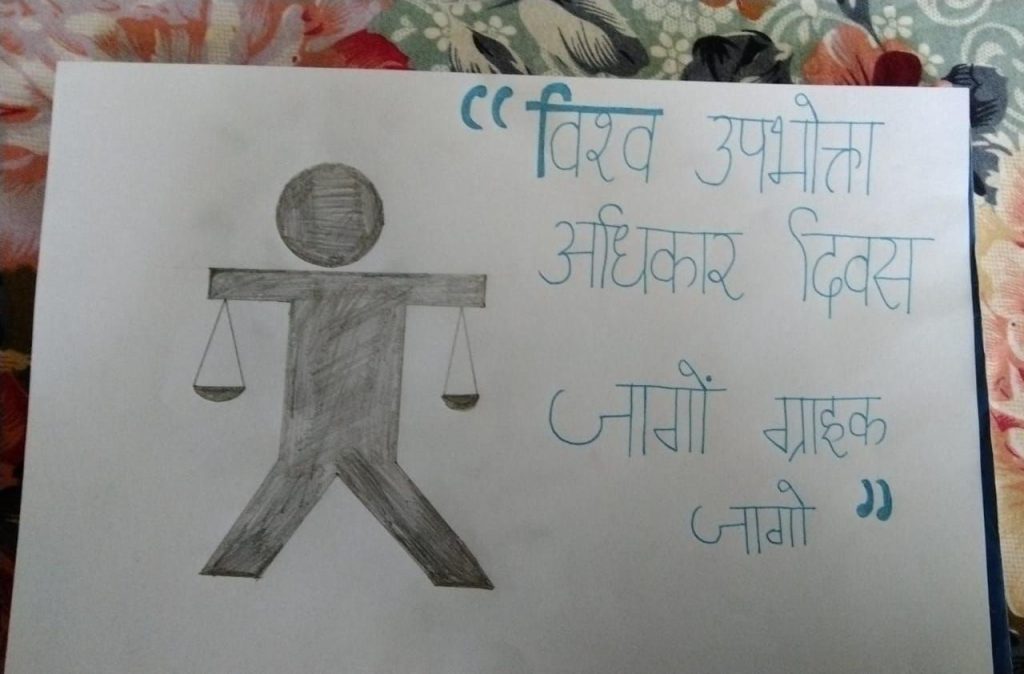 “विश्व उपभोक्ता
अधिकार दिवस
जागों ग्राहक
जागो”